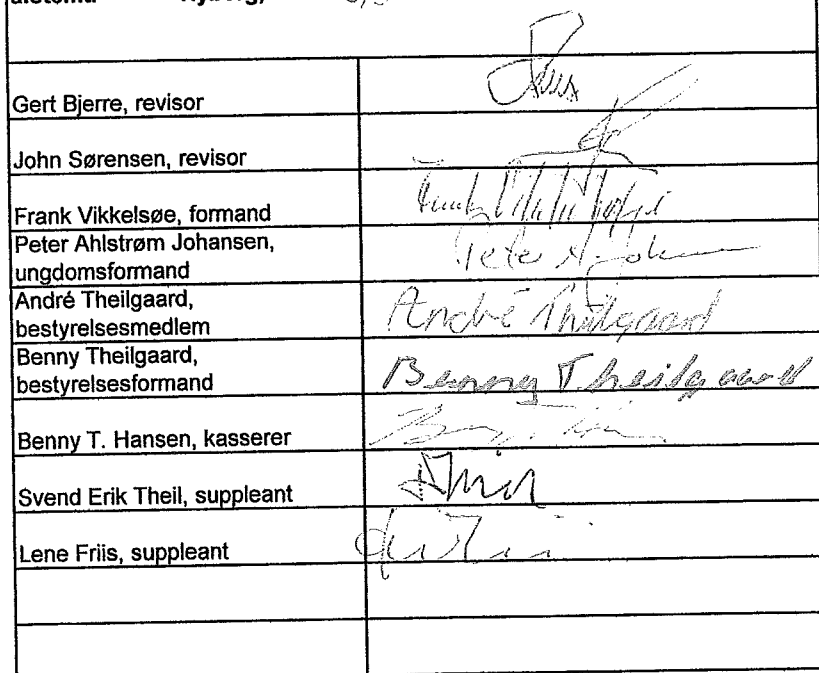 Nyborg,
Gert Bjerre, revisor
John Sørensen, revisor
Frank Vikkelsøe, formand
Peter Ahlstrøm Johansen,
ungdomsformand
André Theilgaard,
bestyrelsesmedlem
André Theilgaard
Benny Theilgaard,
bestyrelsesformand
Benny Theilgaard
Benny T. Hansen, kasserer
Svend Erik Theil, suppleant
Lene Friis, suppleant